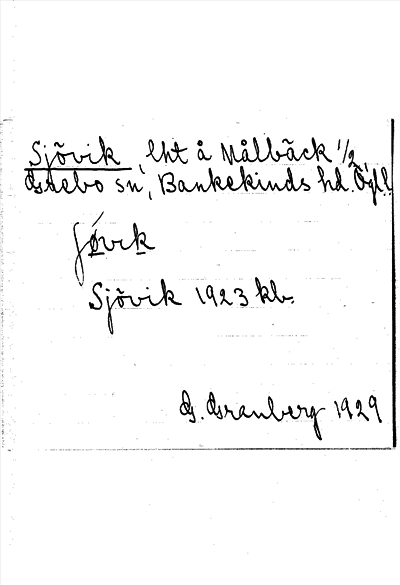 Sjövik, lht å Målbäck 1/2,
Grebo sn, Bankekinds hd. Ögl.
Sjövik 1923 kb.
G. Granberg 1929